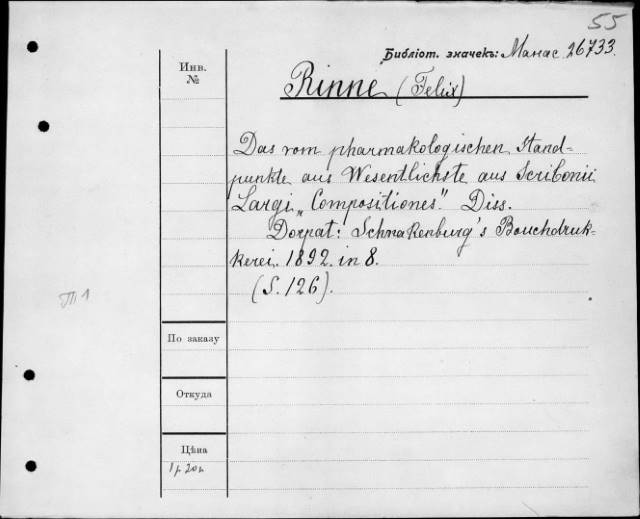 55
Библіот. значекъ: Манас. 26733.
Инв.
№
Rinne (Felix)
Das vom pharmakologischen Stand-
punkte aus Wesentlichste aus Scribonii
Largi „Compositiones". Diss.
Dorpat: Schnakenburg's Bouchdruk-
kerei. 1892. in 8.
(S. 126).
По заказу
Откуда
Цѣна
1 р. 20 к.